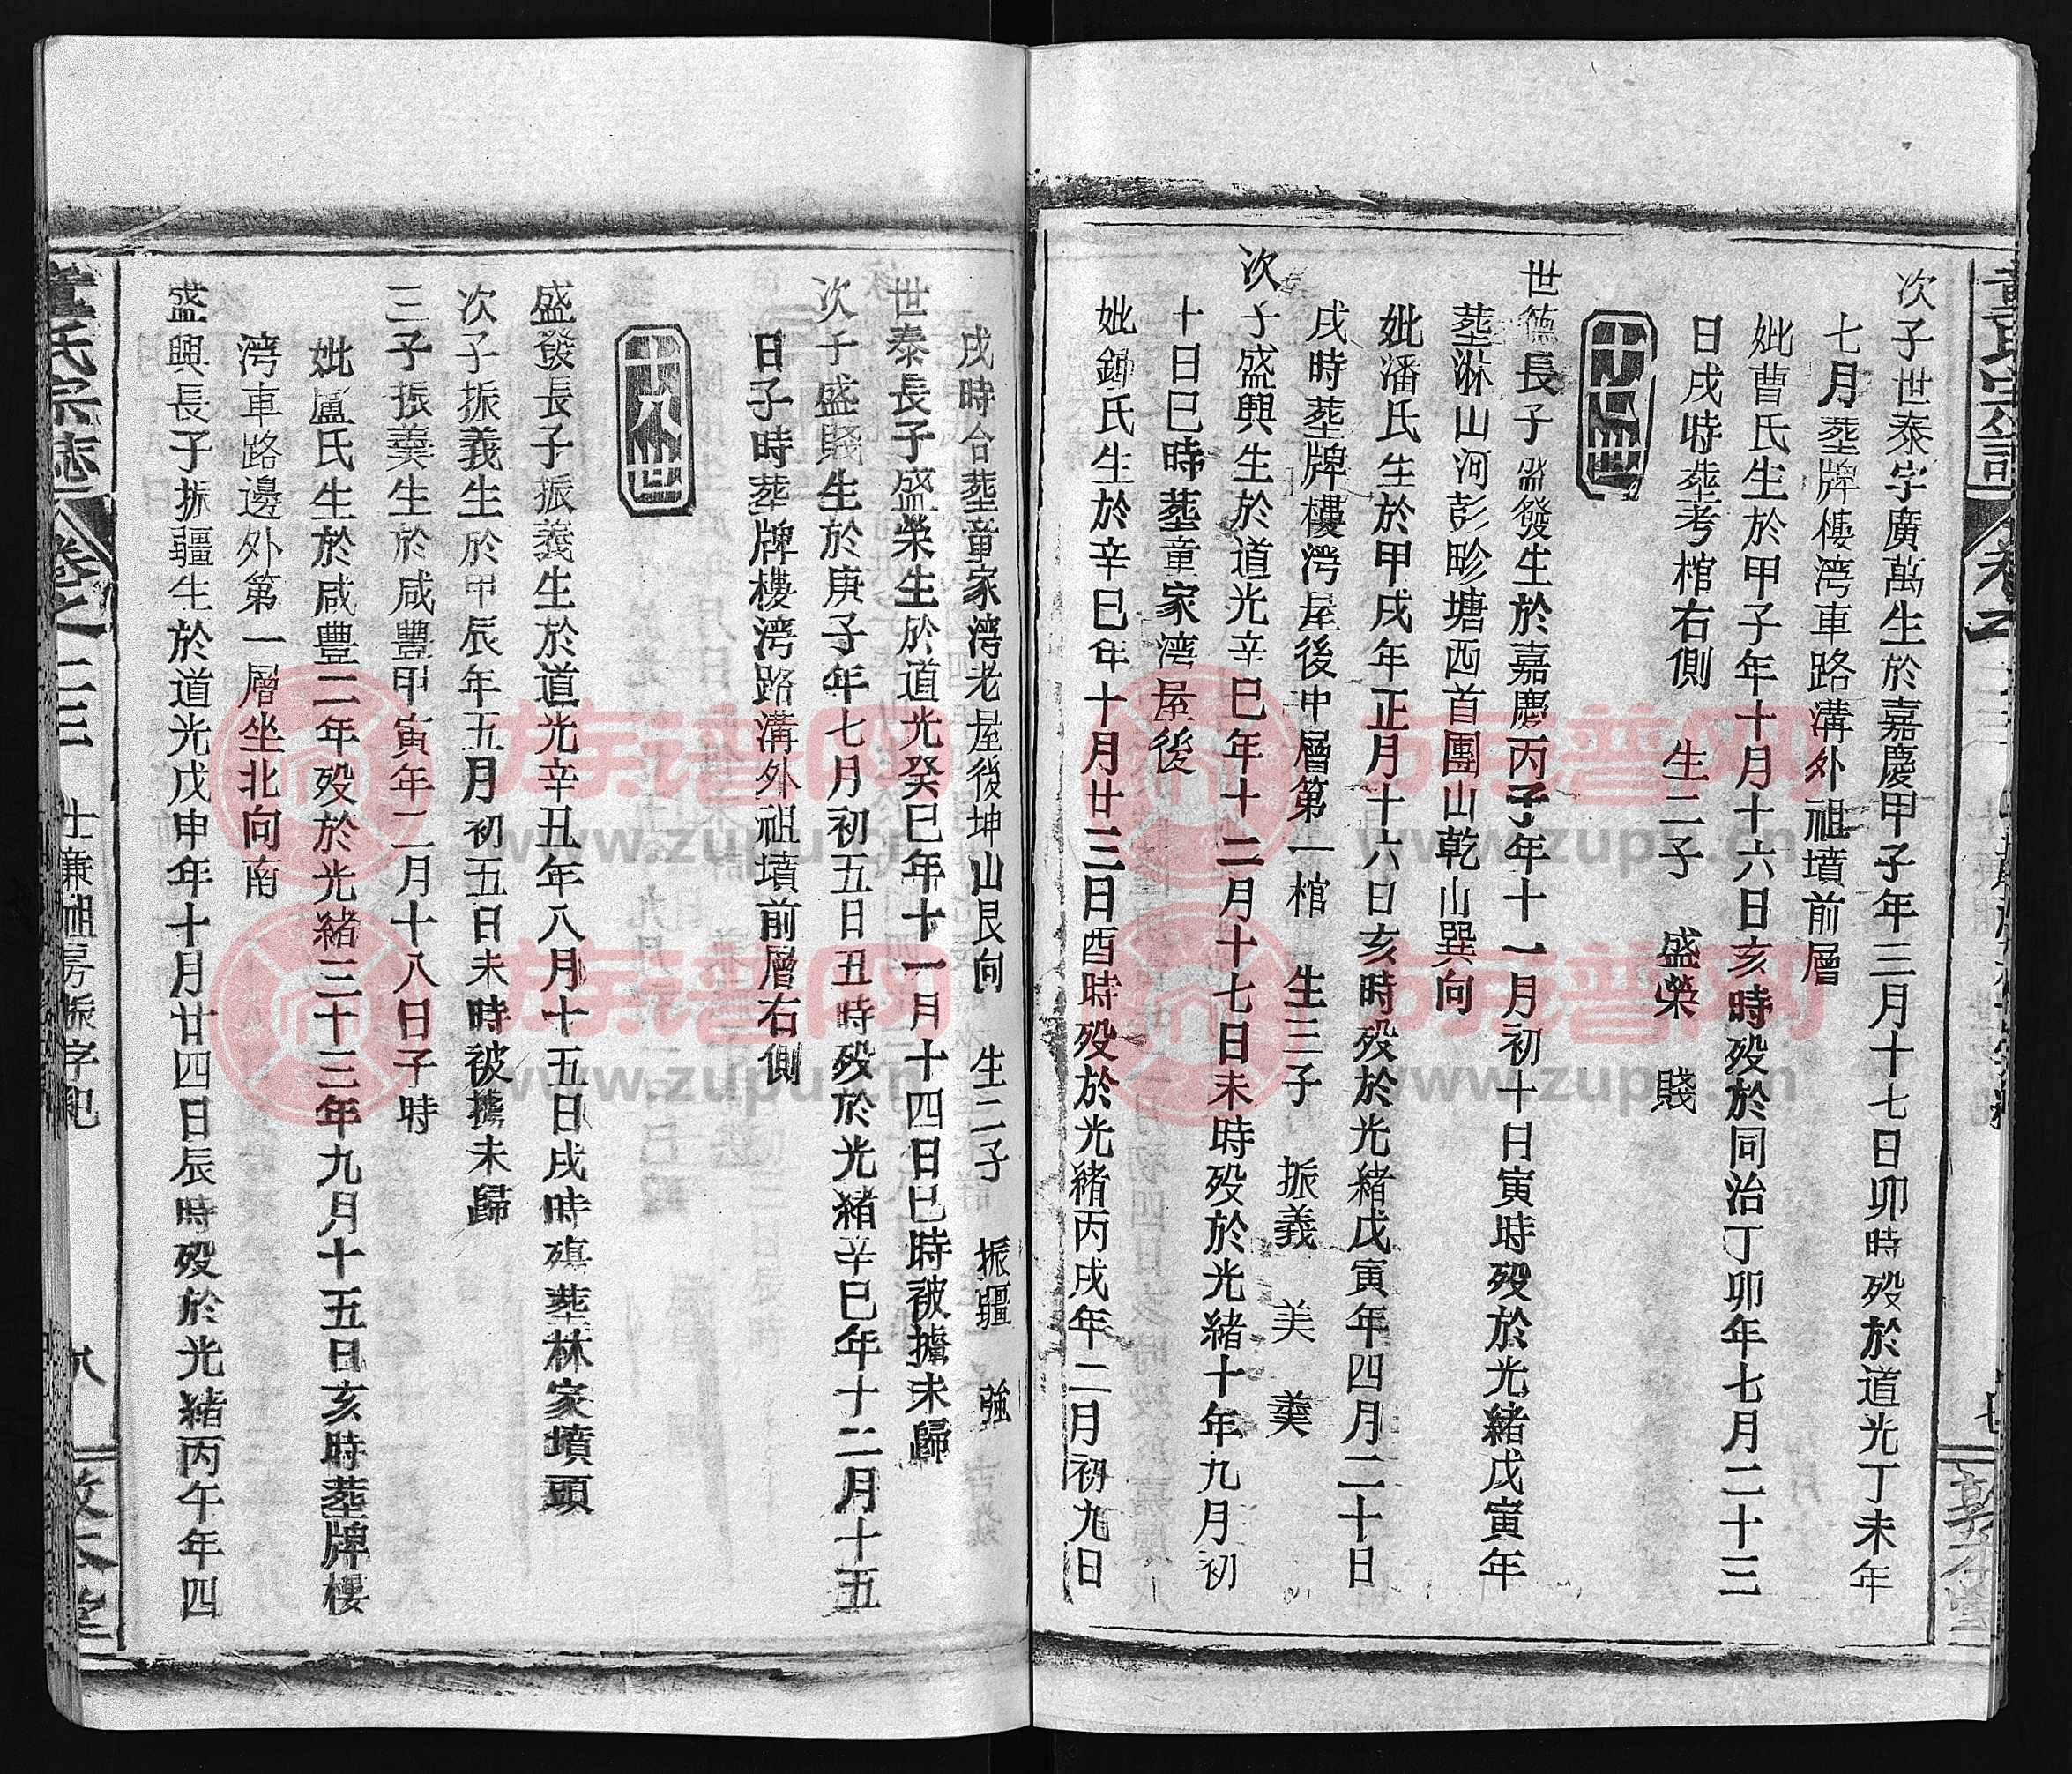 次子世泰字廣萬生於嘉慶甲子年三月十七日卯時歿於道光丁未年
七月塟牌樓湾車路溝外祖墳前層
妣曹氏生於甲子年十月十六日亥時歿於同治丁卯年七月二十三
日戌時塟考棺右側　生二子　盛榮　賤
十七世
世德長子盛發生於嘉慶丙子年十一月初十日寅時歿於光緒戊寅年
塟淋山河彭畛塘西首團山乾山巽向
妣潘氏生於甲戌年正月十六日亥時歿於光緒戊寅年四月二十日
戌時塟牌樓湾屋後中層第一棺　生三子　振義　美　羮
次子盛興生於道光辛巳年十二月十七日未時歿於光緒十年九月初
十日巳時塟童家湾屋後
妣鍾氏生於辛巳年十月廿三日酉時歿於光緒丙戌年二月初九日
戌時合塟童家湾老屋後坤山艮向　生二子　振疆　強
世泰長子盛榮生於道光癸巳年十一月十四日巳時被擄未歸
次子盛賤生於庚子年七月初五日丑時歿於光緒辛巳年十二月十五
日子時塟牌樓湾路溝外祖墳前層右側
十八世
盛發長子振義生於道光辛丑年八月十五日戌時殤塟林家墳頭
次子振義生於甲辰年五月初五日未時被擄未歸
三子振羮生於咸豐甲寅年二月十八日子時
妣盧氏生於咸豐二年歿於光緒三十三年九月十五日亥時塟牌樓
湾車路邊外第一層坐北向南
盛興長子振疆生於道光戊申年十月廿四日辰時歿於光緒丙午年四
童氏宗誌　卷之二三　士廉祖房振字紀　八　敦本堂
族谱网
www.zupu.cn
族谱网
www.zupu.cn
族谱网
www.zupu.cn
族谱网
www.zupu.cn